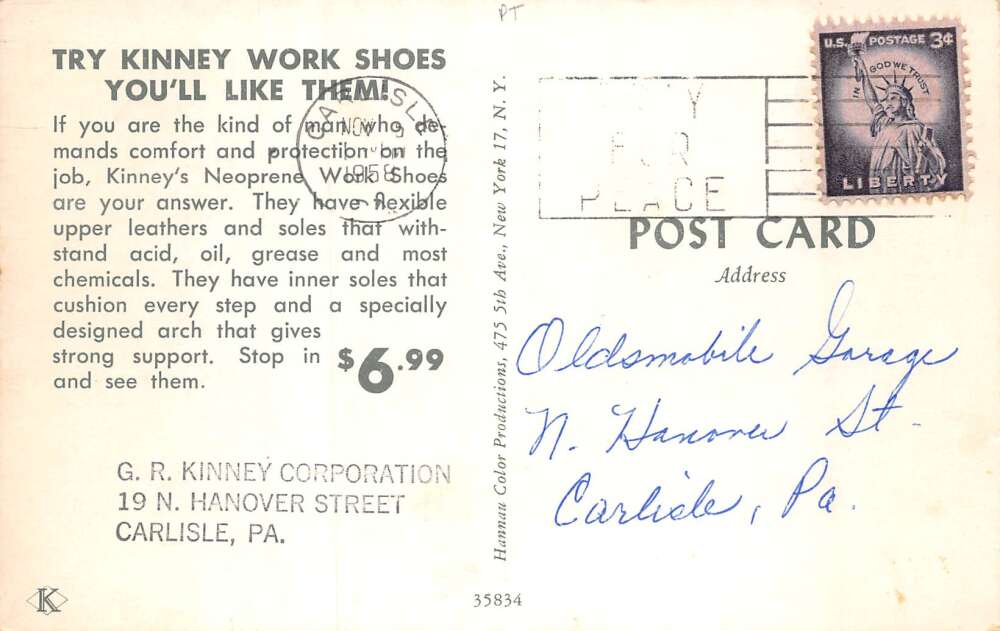 PT
TRY KINNEY WORK SHOES
YOU'LL LIKE THEM!
If you are the kind of man who de-
mands comfort and protection on the
job, Kinney's Neoprene Work Shoes
are your answer. They have flexible
upper leathers and soles that with-
stand acid, oil, grease and most
chemicals. They have inner soles that
cushion every step and a specially
designed arch that gives
strong support. Stop in
and see them.
$6.99
G. R. KINNEY CORPORATION
19 N. HANOVER STREET
CARLISLE, PA.
K
Hannau Color Productions, 475 5th Ave., New York 17, N. Y.
35834
CARLISLE
NOV 9
1958
FOR
PEACE
U.S. POSTAGE 3¢
IN GOD WE TRUST
LIBERTY
POST CARD
Address
Oldsmobile Garage
N. Hanover St.
Carlisle, Pa.